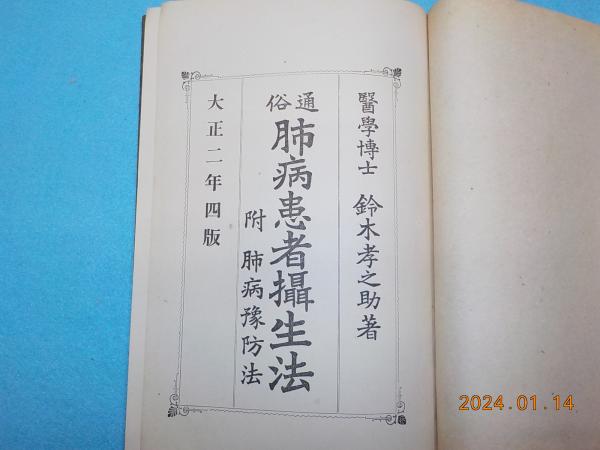 醫學博士 鈴木孝之助著
通俗
肺病患者攝生法
附 肺病豫防法
大正二年四版
2024.01.14